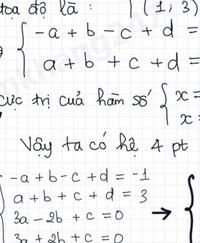 toạ độ là : (1; 3)
-a + b - c + d =
a + b + c + d =
cực trị của hàm số { x =
x =
Vậy ta có hệ 4 pt
-a + b - c + d = -1
a + b + c + d = 3
3a - 2b + c = 0 → {
3a + 2b + c = 0